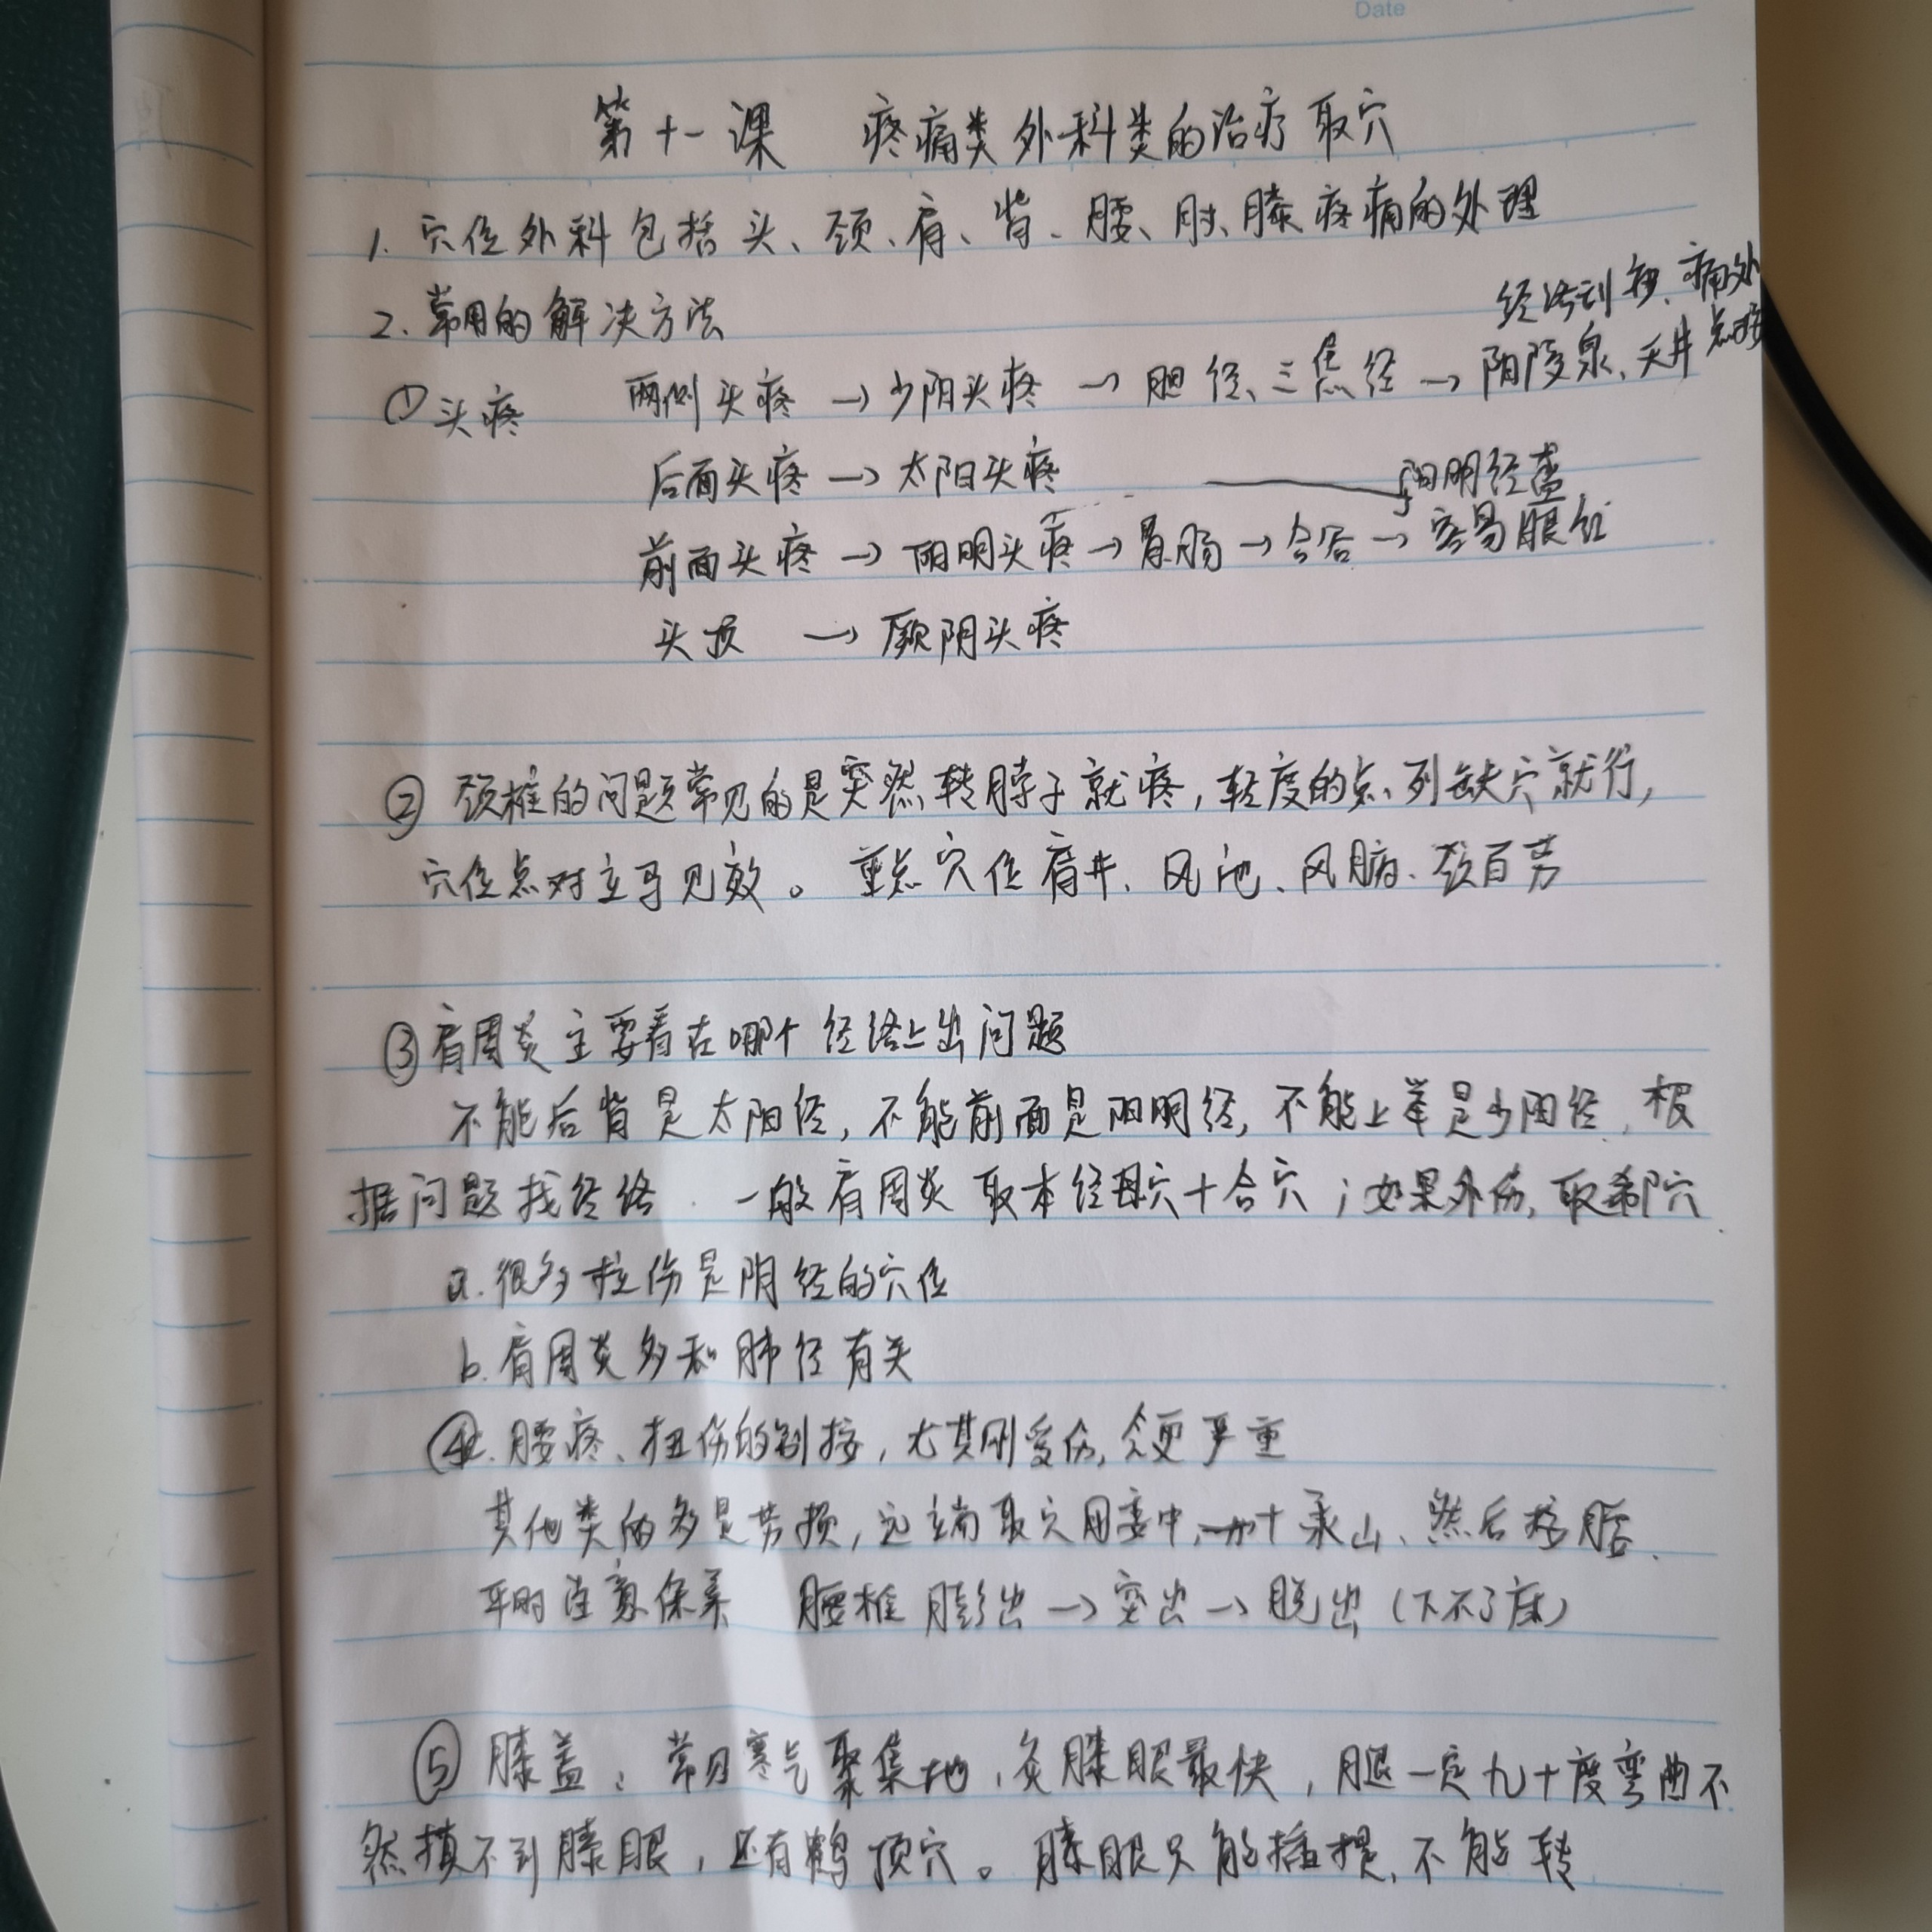 Date
第十一课 疼痛类外科类的治疗取穴
1. 穴位外科包括头、颈、肩、背、腰、肘、膝疼痛的处理
2. 常用的解决方法
经络刮痧、痛处点按
①头疼 两侧头疼→少阳头疼→胆经、三焦经→阳陵泉、天井
后面头疼→太阳头疼 阳明经盖
前面头疼→阳明头疼→胃肠→合谷→容易眼红
头顶→厥阴头疼
② 颈椎的问题常见的是突然转脖子就疼,轻度的点列缺穴就行,
穴位点对立马见效。重点穴位肩井、风池、风府、颈百劳
③肩周炎主要看在哪个经络上出问题
不能后背是太阳经,不能前面是阳明经,不能上举是少阳经,根
据问题找经络 一般肩周炎取本经母穴+合穴;如果外伤,取郄穴
a.很多拉伤是阴经的穴位
b.肩周炎多和肺经有关
④.腰疼、扭伤的别按,尤其刚受伤,会更严重
其他类的多是劳损,远端取穴用委中+承山、然后按腰.
平时注意保养 腰椎膨出→突出→脱出(下不了床)
⑤膝盖:常见寒气聚集地,灸膝眼最快,腿一定九十度弯曲不
然摸不到膝眼,还有鹤顶穴。膝眼只能插提,不能转